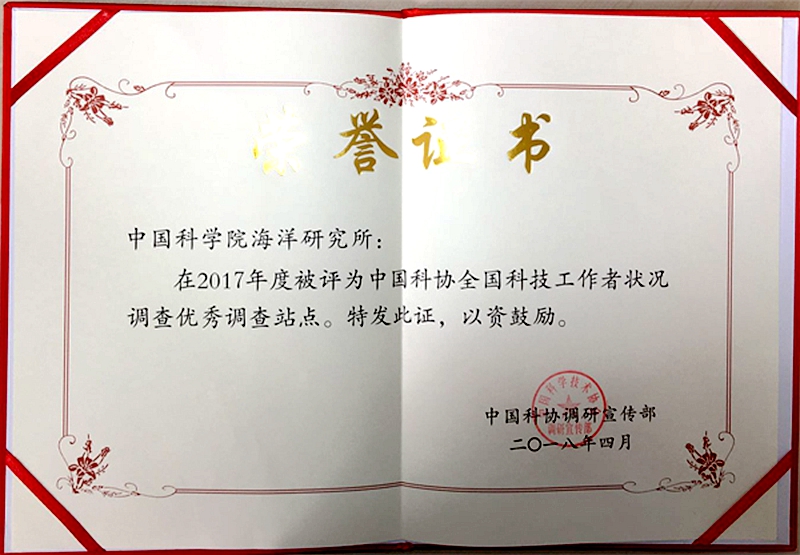 荣誉证书
中国科学院海洋研究所：
在2017年度被评为中国科协全国科技工作者状况
调查优秀调查站点。特发此证，以资鼓励。
中国科协调研宣传部
二〇一八年四月
中国科学技术协
调研宣传部